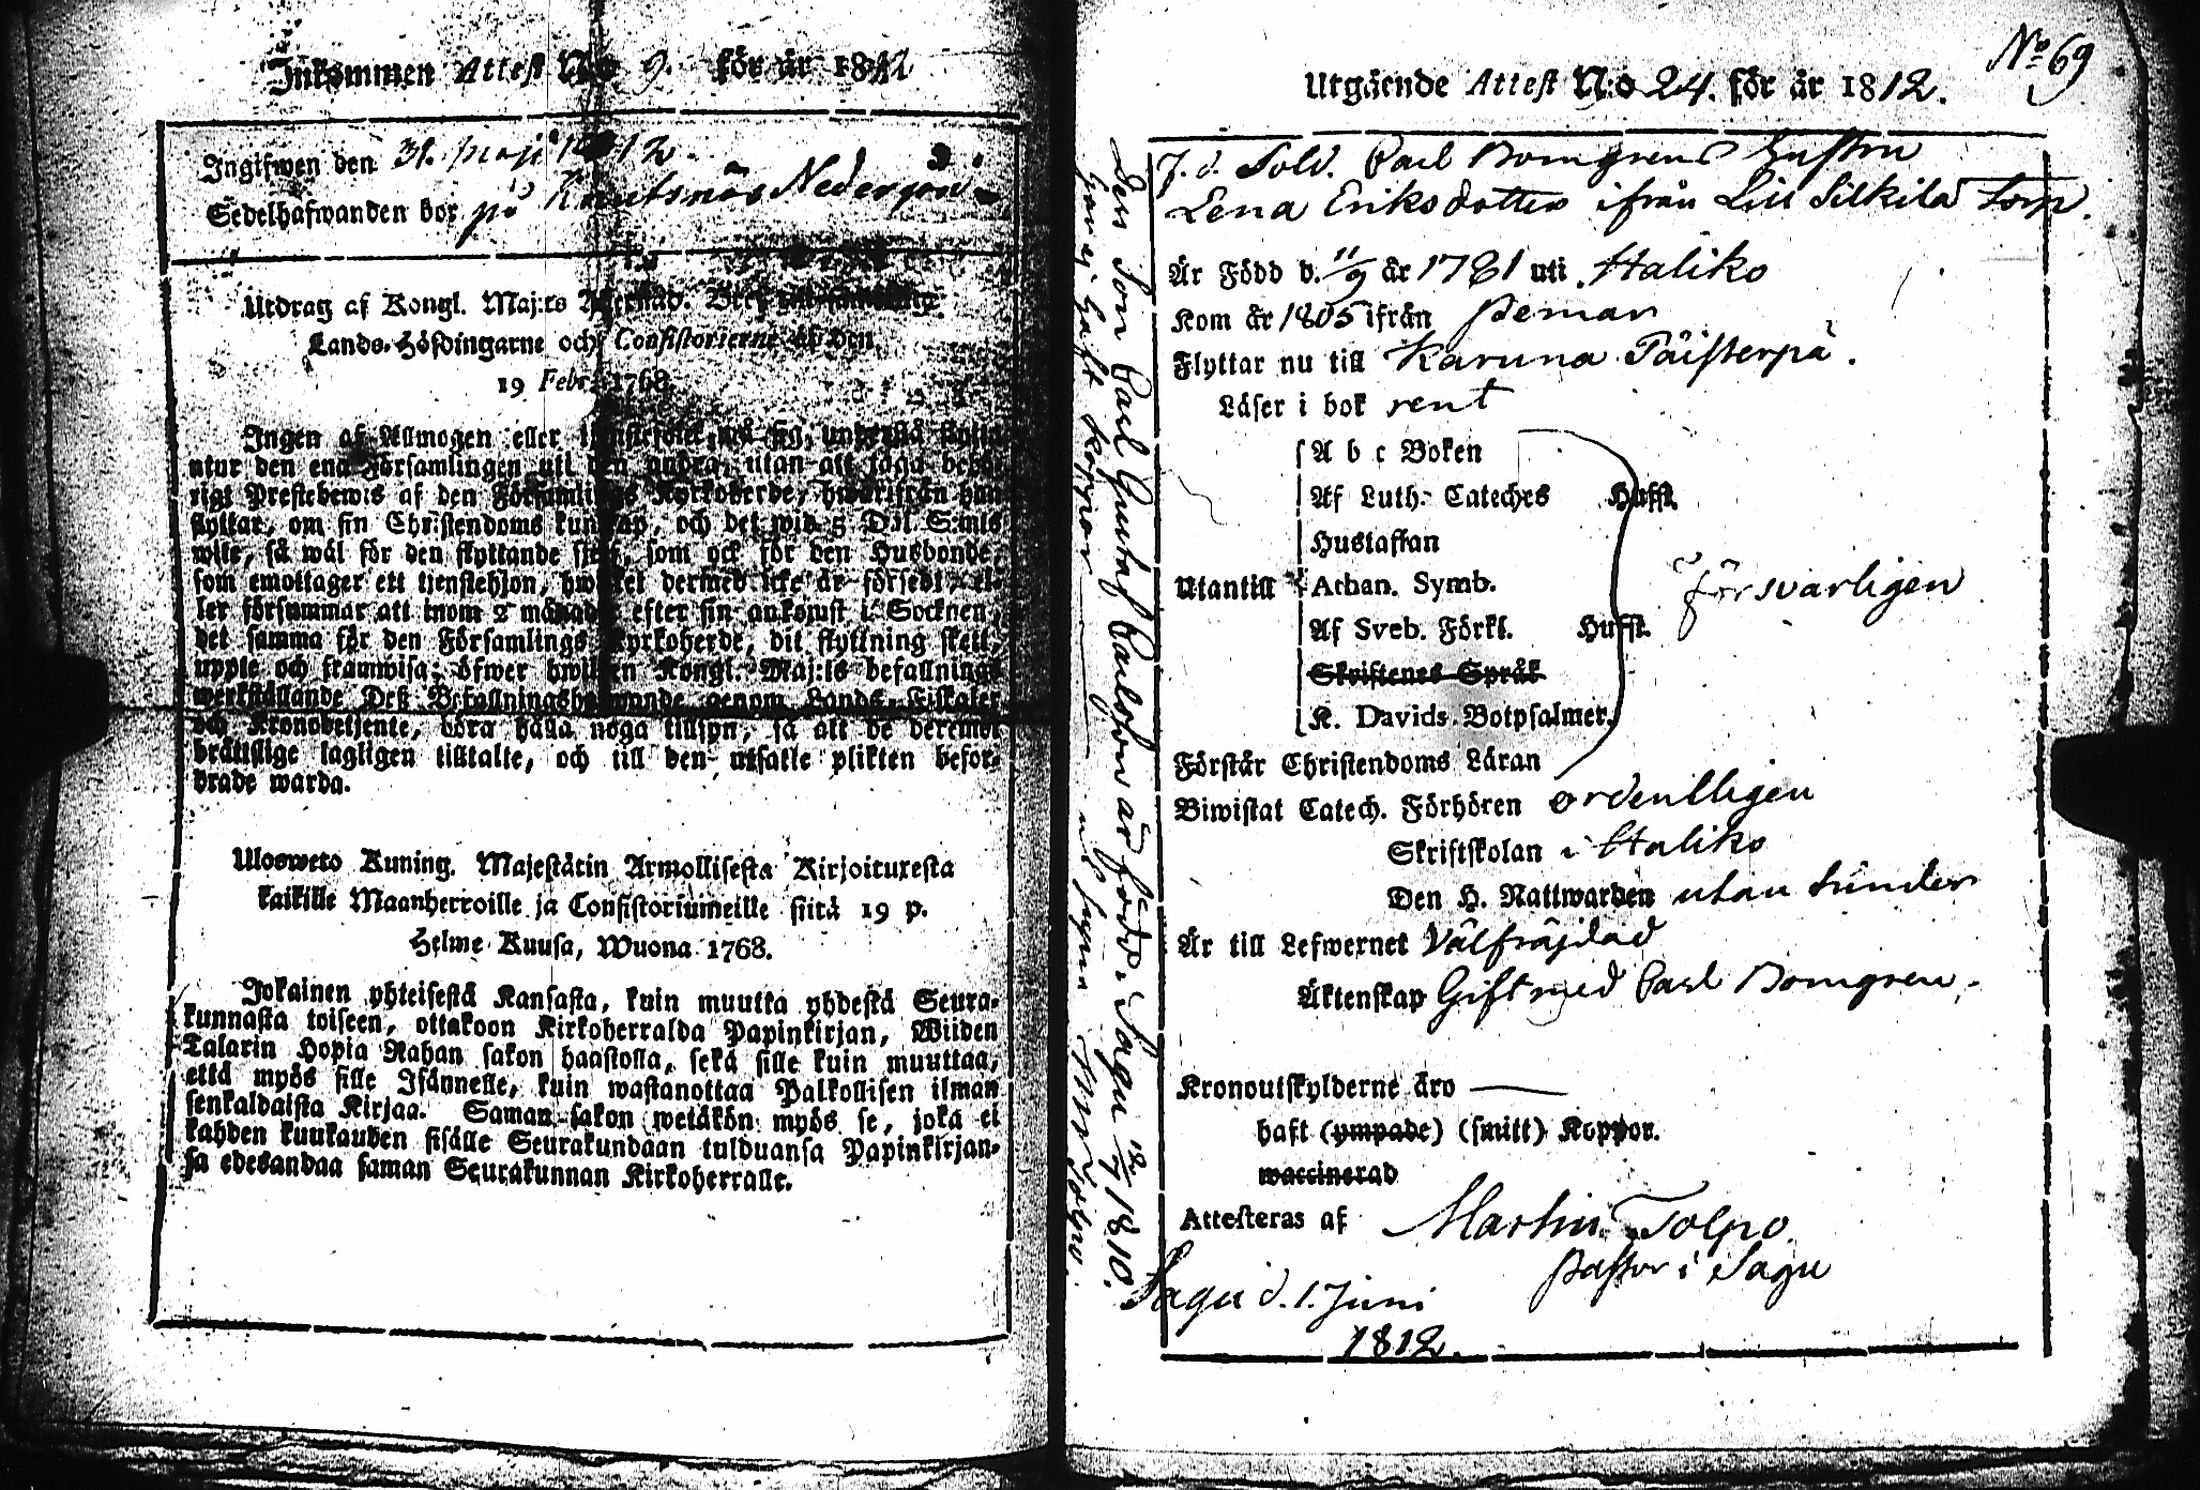 Inkommen Attest No 9. för år 1812
Ingifwen den 31. Maji 1812.
Sedelhafwanden bor på Knutsnäs Nedergård
Utdrag af Kongl. Maj:ts Bref
Lands-Höfdingarne och Consistorierne af den
19 Febr. 1768.
Ingen af Allmogen eller må understå
utur den ena Församlingen till den andra, utan att taga behö-
rigt Prestebewis af den Församlings Kyrkoherde, hwarifrån han
flyttar, om sin Christendoms kunskap, och det wid 5 Dal. S:mts
wite, så wäl för den flyttande sjelf, som ock för den Husbonde,
som emottager ett tjenstehjon, hwilket dermed icke är försedt, el-
ler försummar att inom 2 månader efter sin ankomst i Socknen,
det samma för den Församlings Kyrkoherde, dit flyttning skett,
uppte och framwisa; öfwer hwilken Kongl. Maj:ts befallnings
werkställande Dess Befallningshafwande genom Lands-Fiskaler
och Kronobetjente, böra hålla noga tillsyn, så att de deremot
brättslige lagligen tilltalte, och till den utsatte plikten befor-
drade warda.
Ulosweto Kuning. Majestätin Armollisesta Kirjoituxesta
kaikille Maanherroille ja Consistoriumeille siitä 19 p.
Helme Kuusa, Wuona 1768.
Jokainen yhteisestä Kansasta, kuin muutta yhdestä Seura-
kunnasta toiseen, ottakoon Kirkoherralda Papinkirjan, Wiiden
Talarin Hopia Rahan sakon haastolla, sekä sille kuin muuttaa,
että myös sille Isännelle, kuin wastanottaa Palkollisen ilman
senkaldaista Kirjaa. Saman sakon wetäkön myös se, joka ei
kahden kuukauden sisälle Seurakundaan tulduansa Papinkirjan-
sa edesandaa saman Seurakunnan Kirkoherralle.
No 69
Utgående Attest N:o 24. för år 1812.
F. d. Sold. Carl Bomgrens Hustru
Lena Eriksdotter ifrån Lill Silkilä torp.
Är Född d. 11/9 år 1781 uti Haliko
Kom år 1805 ifrån Pemar
Flyttar nu till Karuna Päisterpä.
Läser i bok rent
A b c Boken
Af Luth. Cateches Hufst.
Hustaflan
Utantill Athan. Symb. försvarligen
Af Sveb. Förkl. Hufst.
Skriftenes Språk
K. Davids Botpsalmer.
Förstår Christendoms Läran
Biwistat Catech. Förhören ordentligen
Skriftskolan i Haliko
Den H. Nattwarden utan hinder
Är till Lefwernet Välfräjdad
Äktenskap Gift med Carl Bomgren.
Kronoutskylderne äro
haft (ympade) (smitt) Koppor.
waccinerad
Attesteras af Martin Tolpo.
Pastor i Sagu
Sagu d. 1. Juni
1812.
Des Son Carl Gustaf Carlsson är född i Sagu 12/7 1810.
har ej haft koppor ut supra M. Tolpo.